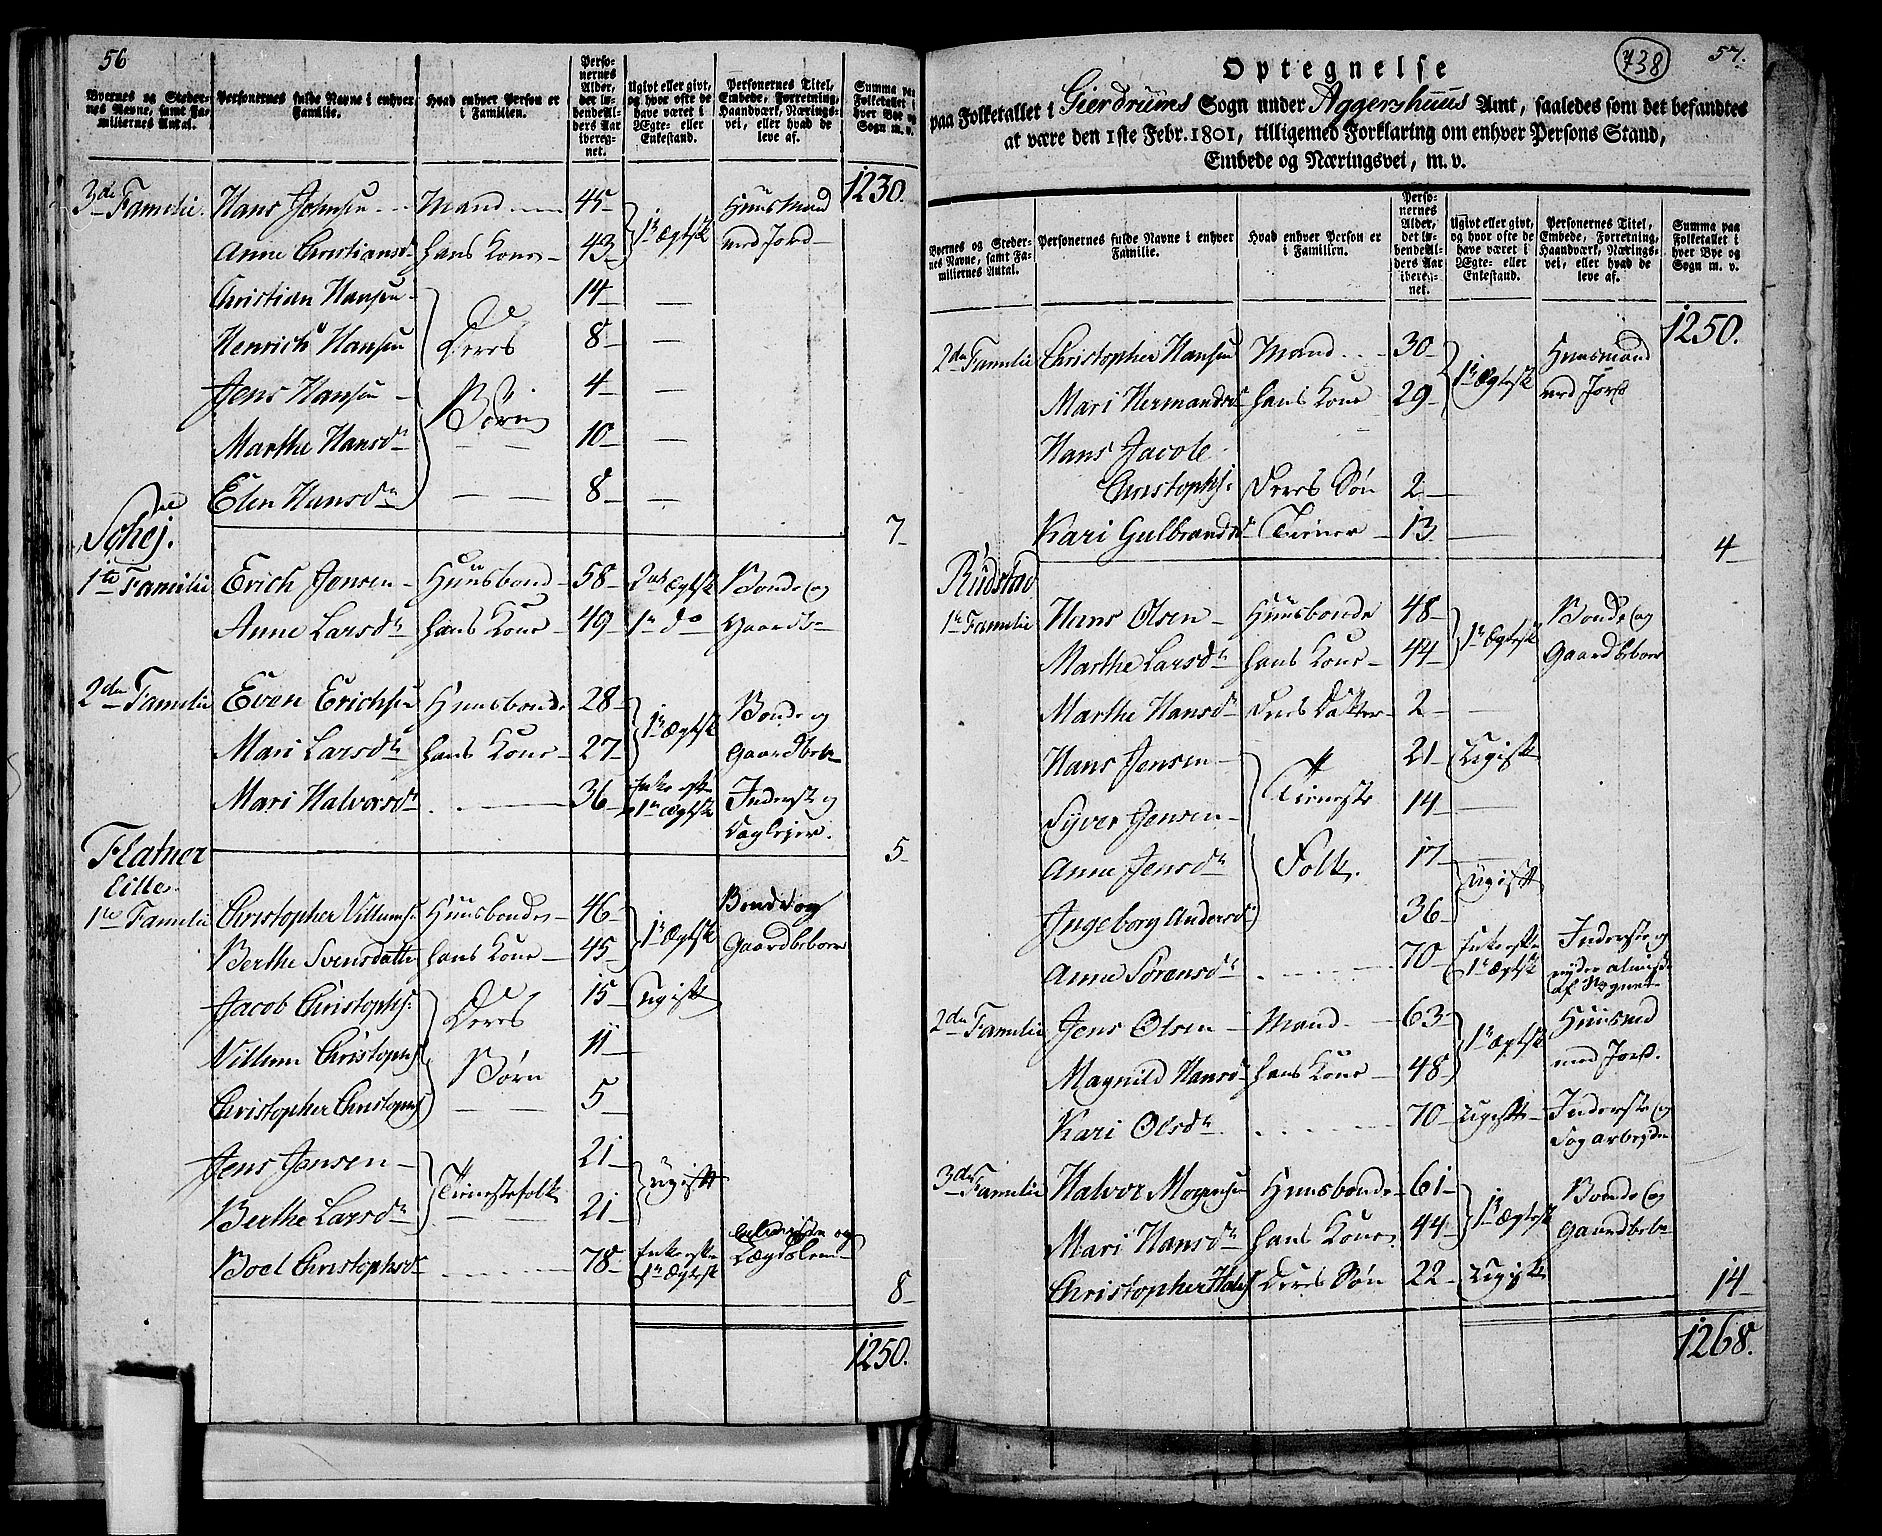 56
Byernes og Steder-
nes Navne, samt Fa-
miliernes Antal.
Personernes fulde Navne i enhver
Familie.
Hvad enhver Person er
i Familien.
Perso-
nernes
Alder,
det lø-
bende Al-
ders Aar
ibereg-
net.
Ugivt eller givt,
og hvor ofte de
have været i
Ægte- eller
Enkestand.
Personernes Titel,
Embede, Forretning,
Haandværk, Nærings-
vei, eller hvad de
leve af.
Summa paa
Folketallet i
hver Bye og
Sogn m. v.
1230.
3de Familie. Hans Johnsen Mand 45 1te Ægtsk Huusmand
Anne Christiansd. hans Kone 43 med Jord
Christian Hansen 14 —
Henrich Hansen Deres 8 —
Jens Hansen 4 —
Marthe Hansdr Børn 10 —
Elen Hansdr 8 —
7
1te Familie Erich Jensen Huusbond 58 2det Ægtsk Bonde og
Anne Larsdr hans Kone 49 1te do Gaardb
2den Familie Even Erichsen Huusbonde 28 1te Ægtsk Bonde og
Mari Larsdr hans Kone 27 Gaardbeb
Mari Halvorsdr 36 Enke efter Inderst og
1te Ægtsk Daglejer.
5
Flatner
lille.
1te Familie Christopher Villumsen Huusbonde 46 1te Ægtsk Bonde og
Berthe Svensdatter hans Kone 45 Gaardbeboer
Jacob Christophs: Deres 15 Ugift
Villum Christophs 11 —
Christopher Christophs Børn 5 —
Jens Jensen 21 Ugift
Berthe Larsdr Tienestefolk 21
Boel Christophsdr 78 Enke efter
1te Ægtsk
8
1250.
738
57.
Optegnelse
paa Folketallet i Gierdrums Sogn under Aggershuus Amt, saaledes som det befandtes
at være den 1ste Febr. 1801, tilligemed Forklaring om enhver Persons Stand,
Embede og Næringsvei, m. v.
Byernes og Steder-
nes Navne, samt Fa-
miliernes Antal.
Personernes fulde Navne i enhver
Familie.
Hvad enhver Person er
i Familien.
Perso-
nernes
Alder,
det lø-
bende Al-
ders Aar
ibereg-
net.
Ugivt eller givt,
og hvor ofte de
have været i
Ægte- eller
Enkestand.
Personernes Titel,
Embede, Forretning,
Haandværk, Nærings-
vei, eller hvad de
leve af.
Summa paa
Folketallet i
hver Bye og
Sogn m. v.
1250.
2den Familie Christopher Hansen Mand 30 1te Ægtesk Huusmand
Mari Hermandsdr hans Kone 29 med Jord
Hans Jacob
Christophs: Deres Søn 2 —
Kari Gulbrandsd Tiener 13 —
4
Rudstad
1te Familie Hans Olsen Huusbonde 48 1te Ægtesk Bonde og
Marthe Larsdr hans Kone 44 Gaardbeboer
Marthe Hansdr Deres Datter 2 —
Hans Jensen 21 Ugift
Syver Jensen Tieneste 14 —
Anne Jensdr Folk. 17 Ugift
Ingeborg Andersdr 36
Anne Sörensdr 70 Enke efter Inderste og
1te Ægtsk nyder almisse
af Sognet
2den Familie Jens Olsen Mand 63 1te Ægtsk Huusmd
Magnild Hansd hans Kone 48 med Jord.
Kari Olsdr 70 Ugift Inderste og
3de Familie Halvor Mogensen Huusbonde 61 1te Ægtesk Bonde og
Mari Hansdr hans Kone 44 Gaardbeb
Christopher Halvs Deres Søn 22 Ugift
14
1268.